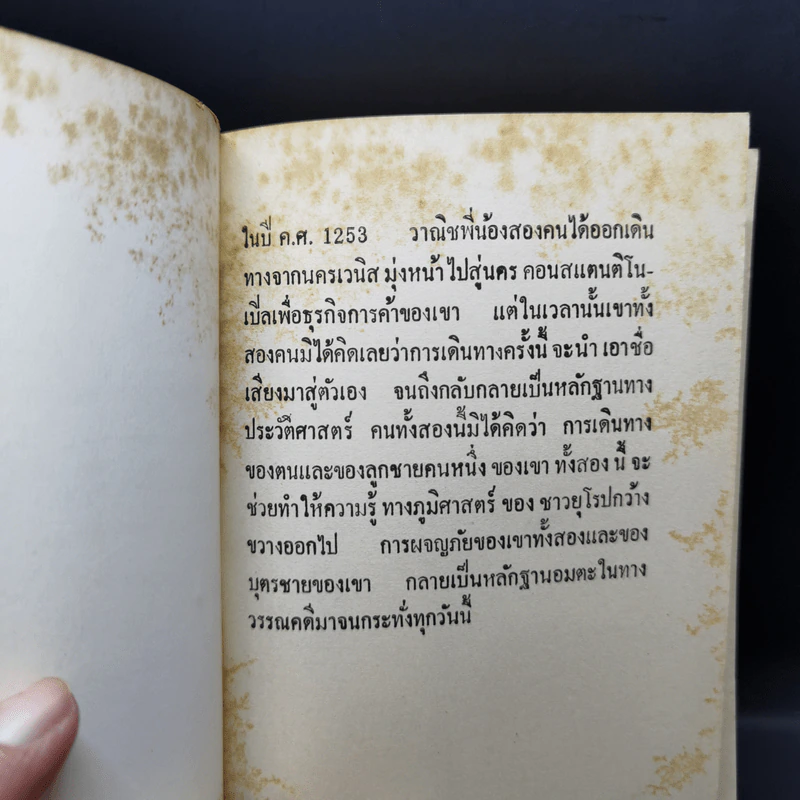 ในปี ค.ศ. 1253 วาณิชพี่น้องสองคนได้ออกเดิน
ทางจากนครเวนิส มุ่งหน้า ไปสู่นคร คอนสแตนติโน-
เบิ่ลเพื่อธุรกิจการค้าของเขา แต่ในเวลานั้นเขาทั้ง
สองคนมิได้คิดเลยว่าการเดินทางครั้งนี้ จะนำ เอาชื่อ
เสียงมาสู่ตัวเอง จนถึงกลับกลายเป็นหลักฐานทาง
ประวัติศาสตร์ คนทั้งสองนี้มิได้คิดว่า การเดินทาง
ของตนและของลูกชายคนหนึ่ง ของเขา ทั้งสอง นี้ จะ
ช่วยทำให้ความรู้ ทางภูมิศาสตร์ ของ ชาวยุโรปกว้าง
ขวางออกไป การผจญภัยของเขาทั้งสองและของ
บุตรชายของเขา กลายเป็นหลักฐานอมตะในทาง
วรรณคดีมาจนกระทั่งทุกวันนี้